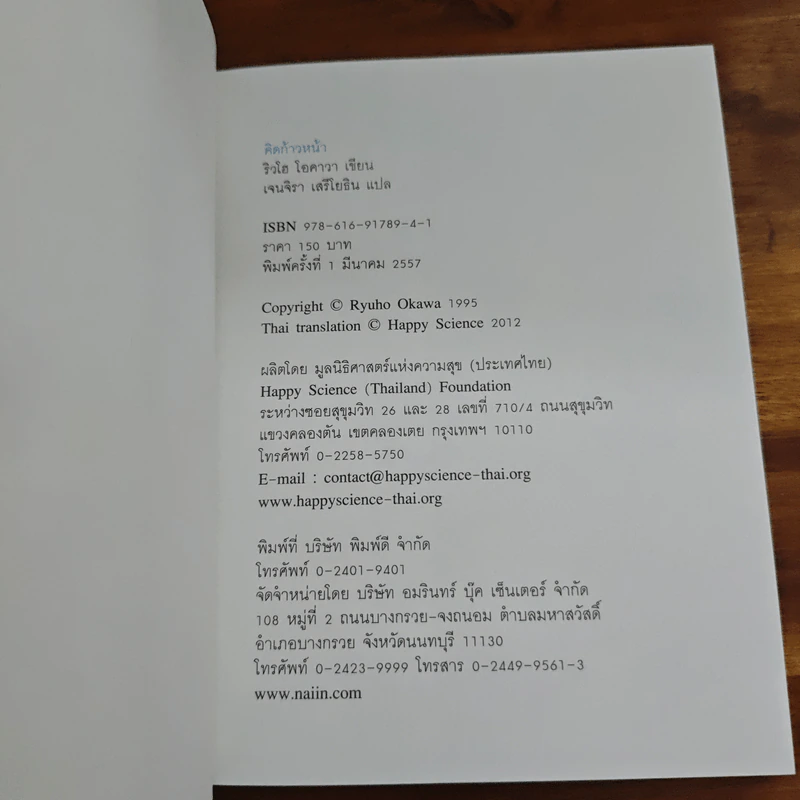 คิดก้าวหน้า
ริวโฮ โอคาวา เขียน
เจนจิรา เสรีโยธิน แปล
ISBN 978-616-91789-4-1
ราคา 150 บาท
พิมพ์ครั้งที่ 1 มีนาคม 2557
Copyright © Ryuho Okawa 1995
Thai translation © Happy Science 2012
ผลิตโดย มูลนิธิศาสตร์แห่งความสุข (ประเทศไทย)
Happy Science (Thailand) Foundation
ระหว่างซอยสุขุมวิท 26 และ 28 เลขที่ 710/4 ถนนสุขุมวิท
แขวงคลองตัน เขตคลองเตย กรุงเทพฯ 10110
โทรศัพท์ 0-2258-5750
E-mail : contact@happyscience-thai.org
www.happyscience-thai.org
พิมพ์ที่ บริษัท พิมพ์ดี จำกัด
โทรศัพท์ 0-2401-9401
จัดจำหน่ายโดย บริษัท อมรินทร์ บุ๊ค เซ็นเตอร์ จำกัด
108 หมู่ที่ 2 ถนนบางกรวย-จงถนอม ตำบลมหาสวัสดิ์
อำเภอบางกรวย จังหวัดนนทบุรี 11130
โทรศัพท์ 0-2423-9999 โทรสาร 0-2449-9561-3
www.naiin.com